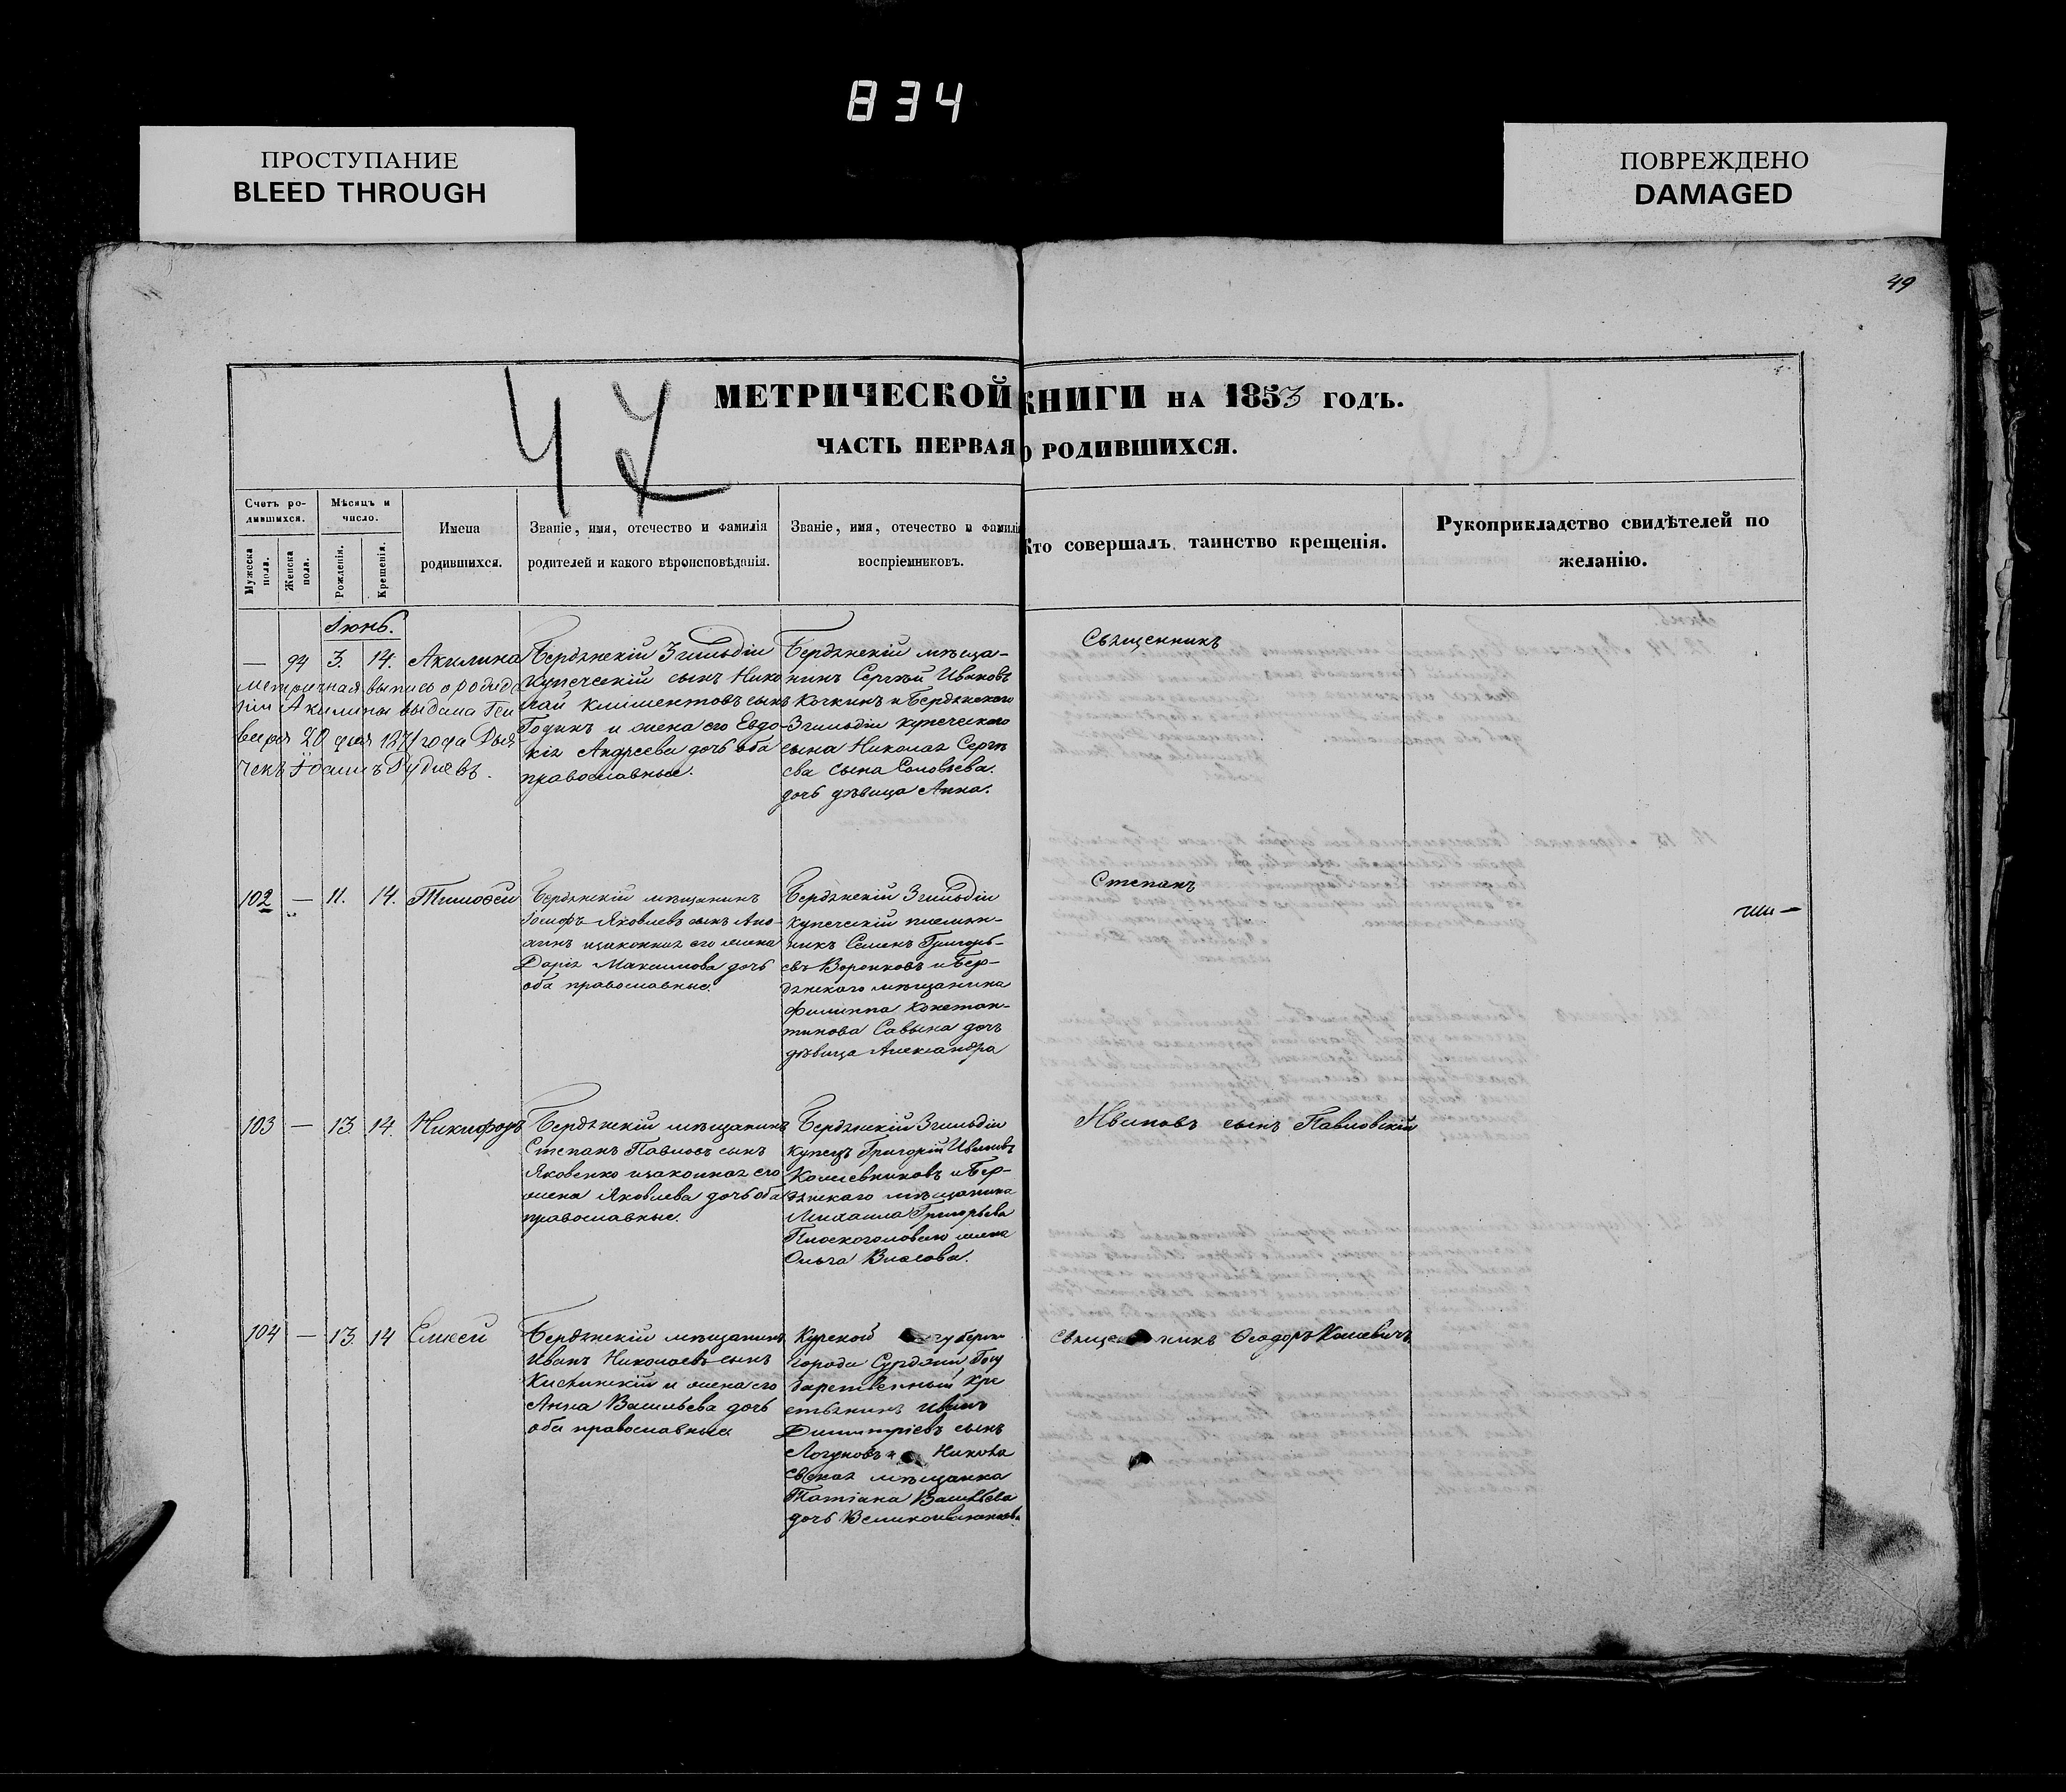 834
ПРОСТУПАНИЕ
BLEED THROUGH
ПОВРЕЖДЕНО
DAMAGED
49
47
МЕТРИЧЕСКОЙ КНИГИ НА 1853 ГОДЪ.
ЧАСТЬ ПЕРВАЯ О РОДИВШИХСЯ.
Счетъ ро-
дившихся.
Мужеска пола.
Женска пола.
Мѣсяцъ и
число.
Рожденія.
Крещенія.
Имена
родившихся.
Званіе, имя, отечество и фамилія
родителей и какого вѣроисповѣданія.
Званіе, имя, отечество и фамилія
воспріемниковъ.
Кто совершалъ таинство крещенія.
Рукоприкладство свидѣтелей по
желанію.
Іюнь.
— 94 3. 14. Акилина
Метричная выпись о рожде
нии Акилины выдана Ген
варя 20 дня 1871 года Дья
чекъ
Бердянскій 3 гильдіи
купеческій сынъ Нико
лай Климентовъ сынъ
Годинъ и жена его Евдо-
кія Андреева дочь оба
православные.
Бердянскій мѣща-
нинъ Сергѣй Ивановъ
Кочкинъ и Бердянскаго
3 гильдіи купеческаго
сына Николая Сергѣ
ева сына Соловьева.
дочь дѣвица Анна.
Священникъ
102 — 11. 14. Тимофей
Бердянскій мѣщанинъ
Іосифъ Яковлевъ сынъ
и законная его жена
Дарія Максимова дочь
оба православные.
Бердянскій 3 гильдіи
купеческій племян-
никъ Семенъ Григорь-
евъ Воронковъ и Бер-
дянскаго мѣщанина
Филиппа Констан-
тинова Савына дочь
дѣвица Александра
Степанъ
103 — 13. 14. Никифоръ
Бердянскій мѣщанинъ
Степанъ Павловъ сынъ
Яковенко и законная его
жена Яковлева дочь оба
православные.
Бердянскій 3 гильдіи
купецъ Григорій Ивановъ
и Бер-
дянскаго мѣщанина
Михаила Григорьева
жена
Ольга Власова.
Ивановъ сынъ Павловскій
104 — 13. 14 Елисей
Бердянскій мѣщанинъ
Иванъ Николаевъ сынъ
и жена его
Анна Васильева дочь
оба православные
Курской губерніи
города Суджи Госу
дарственный кре
стьянинъ Иванъ
Димитріевъ сынъ
Логуновъ и Никола
евская мѣщанка
Татіана Васильева
дочь
Священникъ Ѳеодоръ